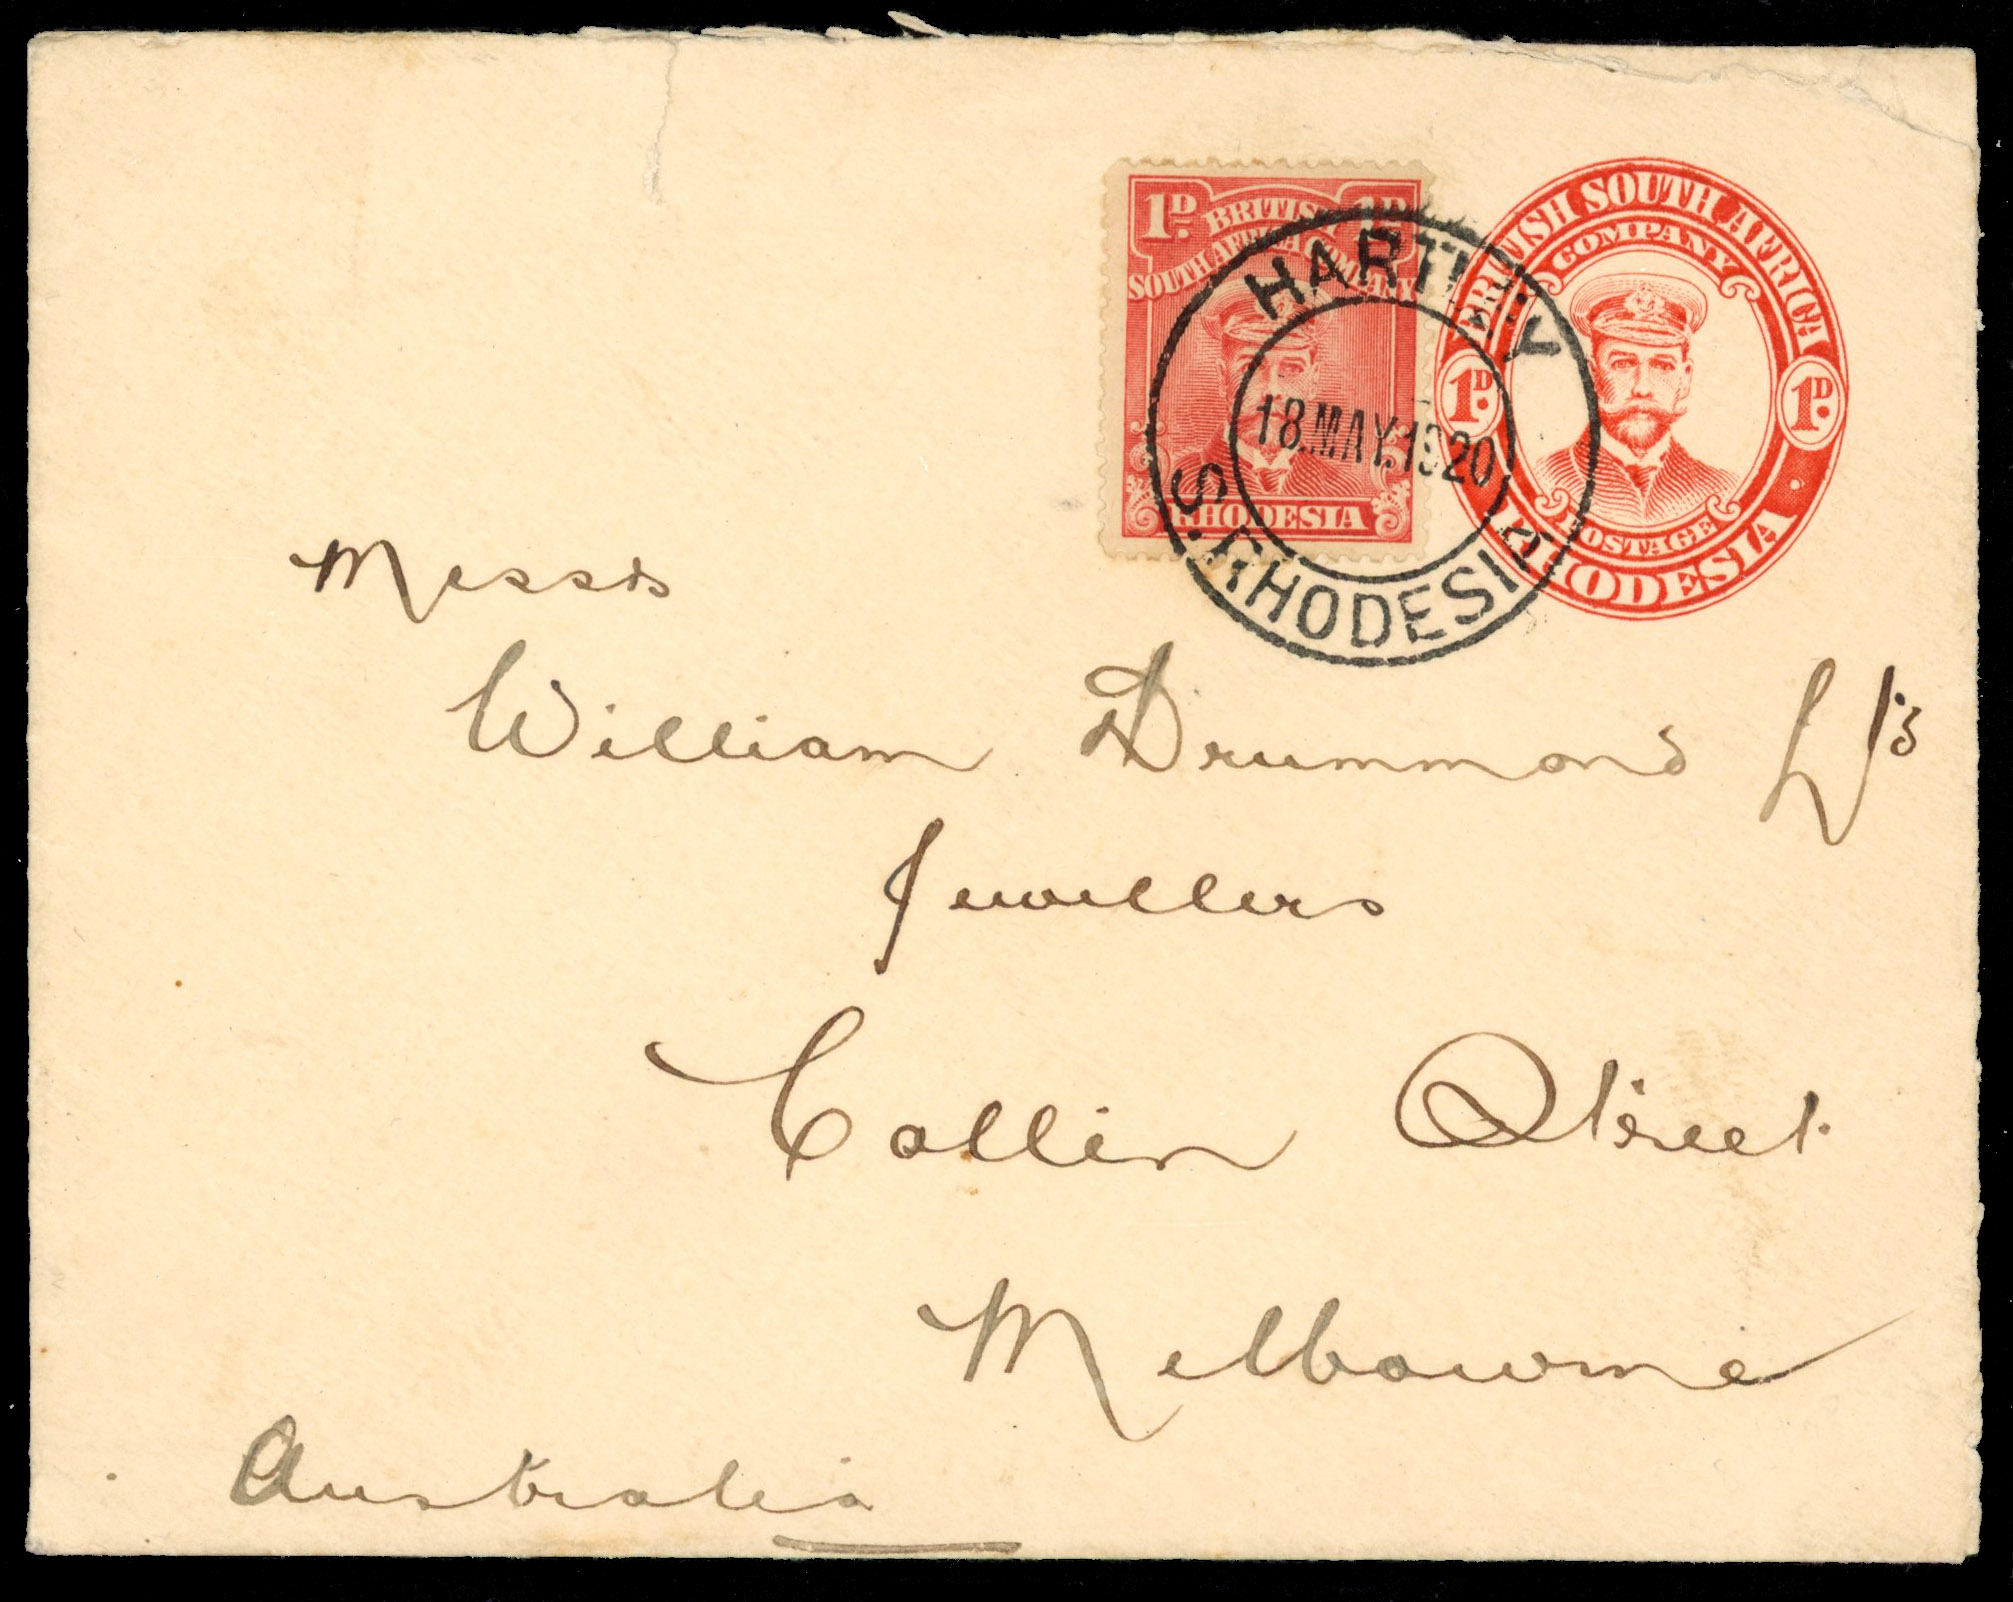 1D. 1D.
BRITISH
SOUTH AFRICA COMPANY
RHODESIA
BRITISH SOUTH AFRICA
COMPANY
1D. 1D.
POSTAGE
RHODESIA
HARTLEY
18.MAY.1920
S.RHODESIA
Messrs
William Drummond
Jewellers
Collin Street
Melbourne
Australia